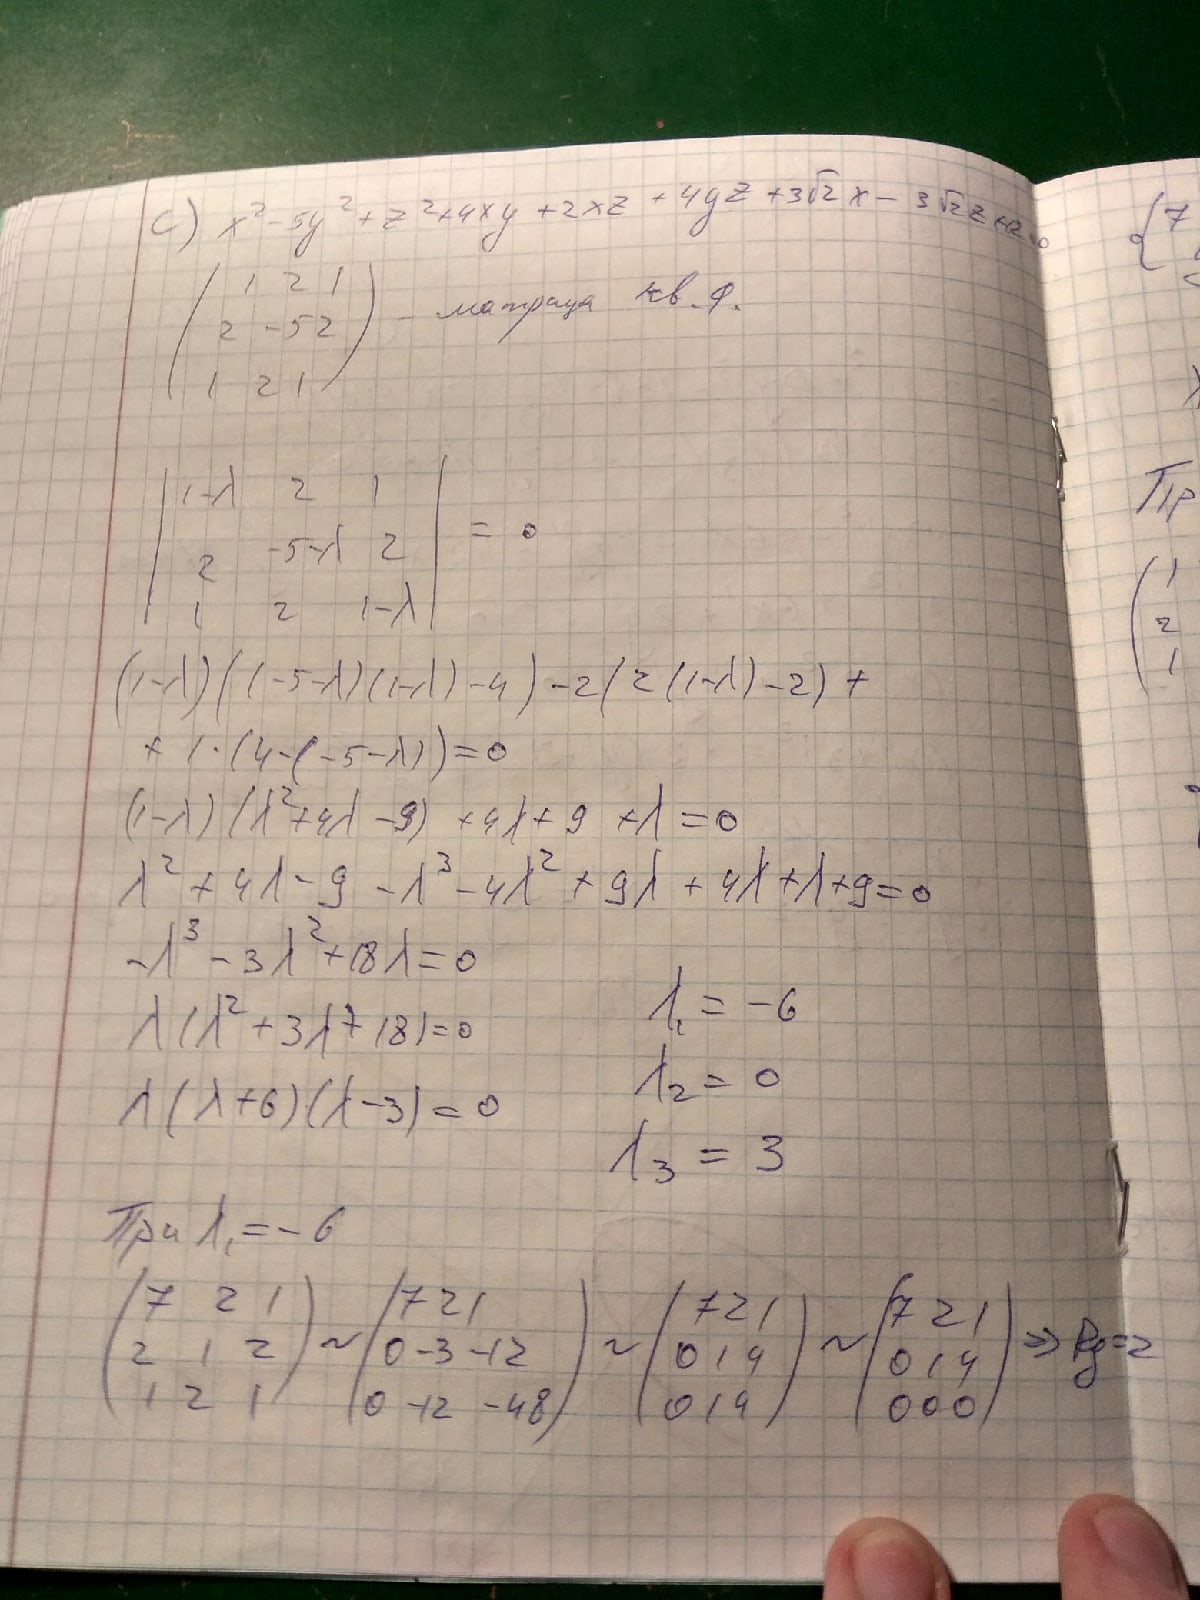 c) x² - 5y² + z² + 4xy + 2xz + 4yz + 3√2 x - 3√2 z + 2 = 0
( 1 2 1
2 -5 2
1 2 1 ) - матрица кв. ф.
| 1-λ 2 1
2 -5-λ 2
1 2 1-λ | = 0
(1-λ)((-5-λ)(1-λ)-4) - 2(2(1-λ)-2) +
+ 1·(4-(-5-λ)) = 0
(1-λ)(λ²+4λ-9) + 4λ + 9 + λ = 0
λ² + 4λ - 9 - λ³ - 4λ² + 9λ + 4λ + λ + 9 = 0
-λ³ - 3λ² + 18λ = 0
λ(λ² + 3λ - 18) = 0
λ(λ+6)(λ-3) = 0
λ₁ = -6
λ₂ = 0
λ₃ = 3
При λ₁ = -6
( 7 2 1 ) ~ ( 7 2 1 ) ~ ( 7 2 1 ) ~ ( 7 2 1 )
( 2 1 2 ) ~ ( 0 -3 -12 ) ~ ( 0 1 4 ) ~ ( 0 1 4 ) => Rg = 2
( 1 2 1 ) ( 0 -12 -48 ) ( 0 1 4 ) ( 0 0 0 )
{ 7
Пр
( 1
2
1